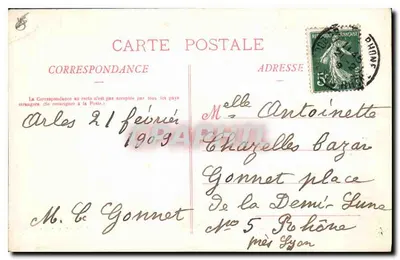 CARTE POSTALE
CORRESPONDANCE
ADRESSE
La Correspondance au recto n'est pas acceptée par tous les pays
étrangers. (Se renseigner à la Poste.)
Arles 21 février
1909
M. C. Gonnet
Melle Antoinette
Chazelles bazar
Gonnet place
de la Demi-Lune
No 5 Rhône
près Lyon
RHONE
5c